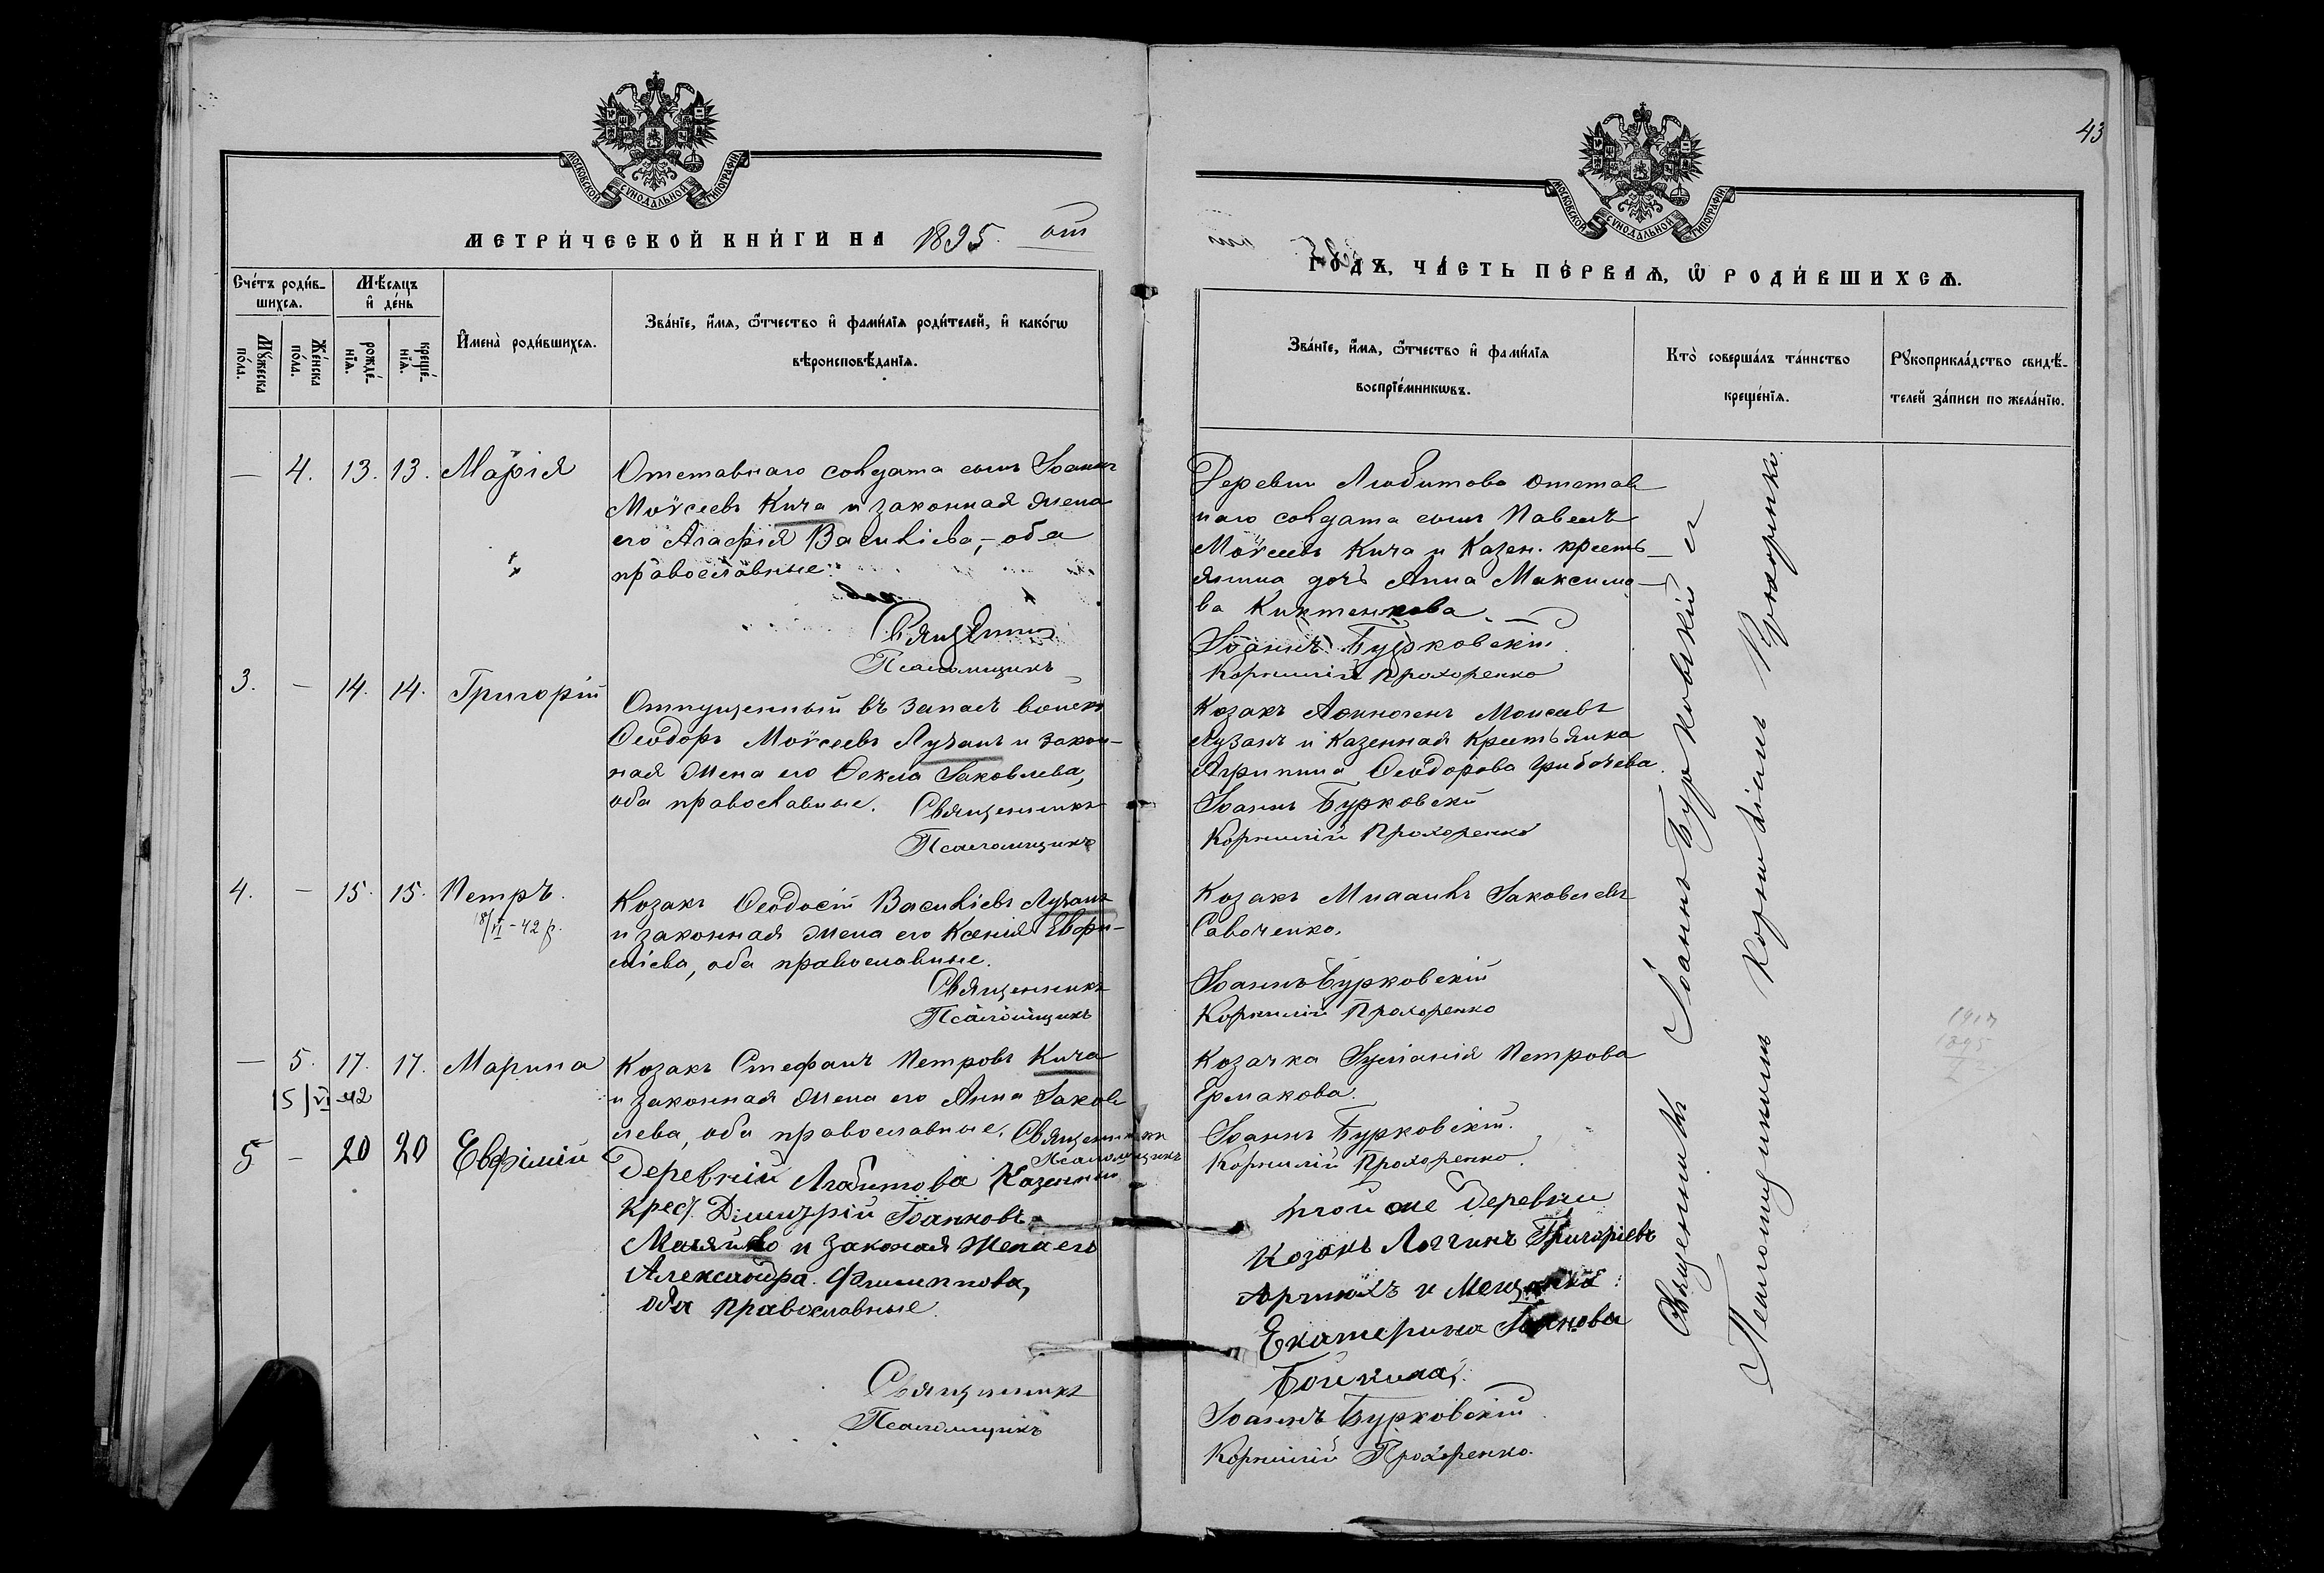 43
МОСКОВСКОЙ СѴНОДАЛЬНОЙ ТИПОГРАФІИ
МОСКОВСКОЙ СѴНОДАЛЬНОЙ ТИПОГРАФІИ
МЕТРИ́ЧЕСКОЙ КНИ́ГИ НА 1895
ГО́ДЪ, ЧА́СТЬ ПЕ́РВАѦ, Ѿ РОДИ́ВШИХСѦ.
Сче́тъ роди́в-
шихсѧ.
Мꙋ́жеска по́ла.
Же́нска по́ла.
Мѣ́сяцъ
и҆ де́нь
рожде́-
нїѧ.
креще́-
нїѧ.
И҆мена̀ роди́вшихсѧ.
Зва́нїе, и҆́мѧ, ѻ҆́тчество и҆ фами́лїѧ роди́телей, и҆ како́гѡ
вѣроисповѣ́данїѧ.
Зва́нїе, и҆́мѧ, ѻ҆́тчество и҆ фами́лїѧ
воспрїе́мникѡвъ.
Кто̀ соверша́лъ та́инство
креще́нїѧ.
Рꙋкоприкла́дство свидѣ́-
телей за́писи по жела́нїю.
— 4. 13. 13. Марія
Отставнаго солдата сынъ Іоаннъ
Моѵсеевъ Кича и законная жена
его Агафія Васильева, – оба
православные.
Священникъ
Псаломщикъ
Деревни Любитова отстав
наго солдата сынъ Павелъ
Моѵсеевъ Кича и Казен. кресть-
янина дочь Анна Максимо-
ва Киктенкова.
Іоаннъ Бурковскій
Корнилій Прохоренко
3. — 14. 14. Григорій
Отпущенный въ запасъ войскъ
Ѳеодоръ Моѵсеевъ Лузанъ и закон-
ная жена его Ѳекла Іаковлева,
оба православные. Священникъ
Псаломщикъ
Козакъ Аѳиногенъ Моисеевъ
Лузанъ и Казенная Крестьянка
Агрипина Ѳеодорова Грибачева.
Іоаннъ Бурковскій
Корнилій Прохоренко
4. — 15. 15. Петръ.
18/VI – 42 р.
Козакъ Ѳеодосій Васильевъ Лузанъ
и законная жена его Ксенія Евфи-
міева, оба православные.
Священникъ
Псаломщикъ
Козакъ Михаилъ Іаковлевъ
Савоченко.
Іоаннъ Бурковскій
Корнилій Прохоренко
— 5. 17. 17. Марина
15/VI-42
Козакъ Стефанъ Петровъ Кича
и законная жена его Анна Іаков
лева, оба православные. Священникъ
Псаломщикъ
Козачка Іуліанія Петрова
Ермакова.
Іоаннъ Бурковскій.
Корнилій Прохоренко.
5 — 20 20 Евфимій
Деревни Любитова Казенный
Крест. Димитрій Іоанновъ
и законая жена его
Александра Филиппова,
оба православные.
Священникъ
Псаломщикъ
той же деревни
Козакъ Логгинъ Григоріевъ
и Мещанка
Екатерина Іоанова
Іоаннъ Бурковскій
Корнилій Прохоренко.
Священникъ Іоаннъ Бурковскій съ
Псаломщикомъ Корниліемъ Прохоренко.